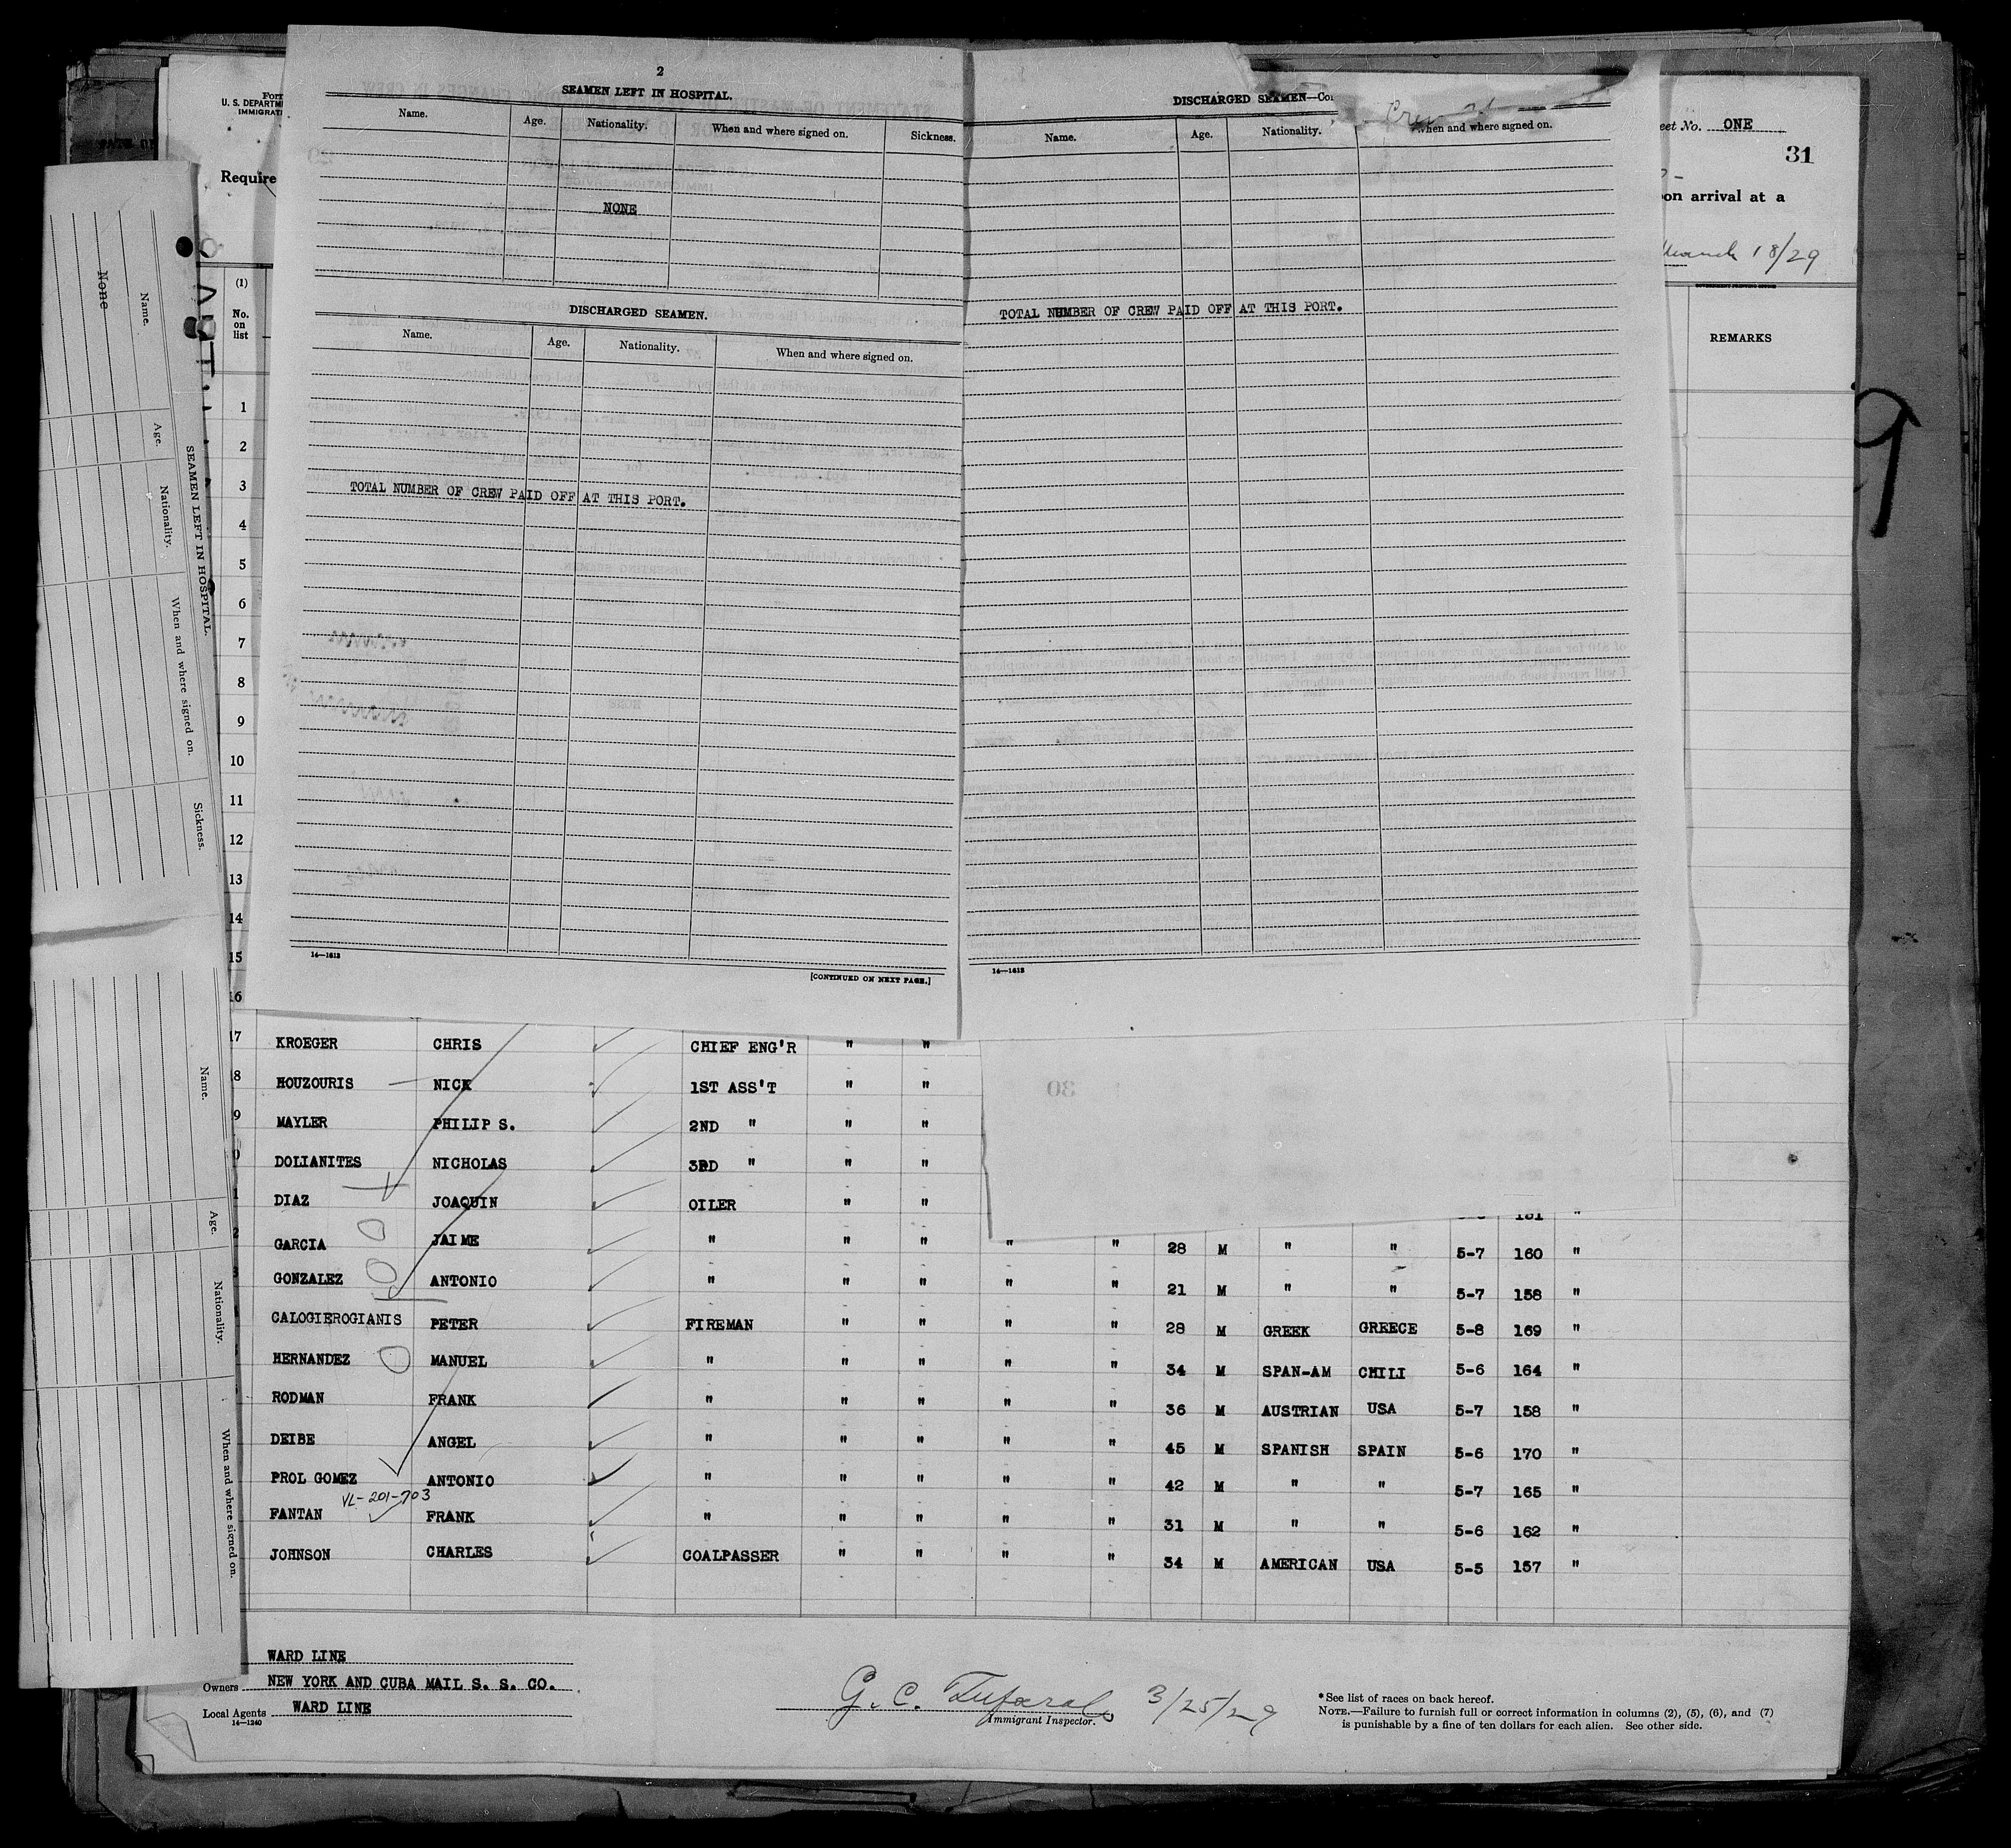 2
SEAMEN LEFT IN HOSPITAL.
Name. Age. Nationality. When and where signed on. Sickness.
NONE
DISCHARGED SEAMEN.
Name. Age. Nationality. When and where signed on.
TOTAL NUMBER OF CREW PAID OFF AT THIS PORT.
14—1613
[CONTINUED ON NEXT PAGE.]
DISCHARGED SEAMEN—Con
Name. Age. Nationality. When and where signed on.
TOTAL NUMBER OF CREW PAID OFF AT THIS PORT.
14—1613
U. S. DEPARTM
IMMIGRATI
Require
eet No. ONE
31
on arrival at a
March 18/29
(1)
No. on list
REMARKS
1
2
3
4
5
6
7
8
9
10
11
12
13
14
15
16
None
SEAMEN LEFT IN HOSPITAL.
Name. Age. Nationality. When and where signed on. Sickness.
Name. Age. Nationality. When and where signed on.
30
7 KROEGER CHRIS CHIEF ENG'R " "
8 HOUZOURIS NICK 1ST ASS'T " "
9 MAYLER PHILIP S. 2ND " " "
0 DOLIANITES NICHOLAS 3RD " " "
1 DIAZ JOAQUIN OILER " " 151 "
2 GARCIA JAIME " " " " " 28 M " " 5-7 160 "
3 GONZALEZ ANTONIO " " " " " 21 M " " 5-7 158 "
CALOGIEROGIANIS PETER FIREMAN " " " " 28 M GREEK GREECE 5-8 169 "
HERNANDEZ MANUEL " " " " " 34 M SPAN-AM CHILI 5-6 164 "
RODMAN FRANK " " " " " 36 M AUSTRIAN USA 5-7 158 "
DEIBE ANGEL " " " " " 45 M SPANISH SPAIN 5-6 170 "
PROL GOMEZ ANTONIO " " " " " 42 M " " 5-7 165 "
VL-201-703
FANTAN FRANK " " " " " 31 M " " 5-6 162 "
JOHNSON CHARLES COALPASSER " " " " 34 M AMERICAN USA 5-5 157 "
WARD LINE
Owners NEW YORK AND CUBA MAIL S. S. CO.
Local Agents WARD LINE
14—1240
G. C. 3/25/29
Immigrant Inspector.
*See list of races on back hereof.
NOTE.—Failure to furnish full or correct information in columns (2), (5), (6), and (7)
is punishable by a fine of ten dollars for each alien. See other side.